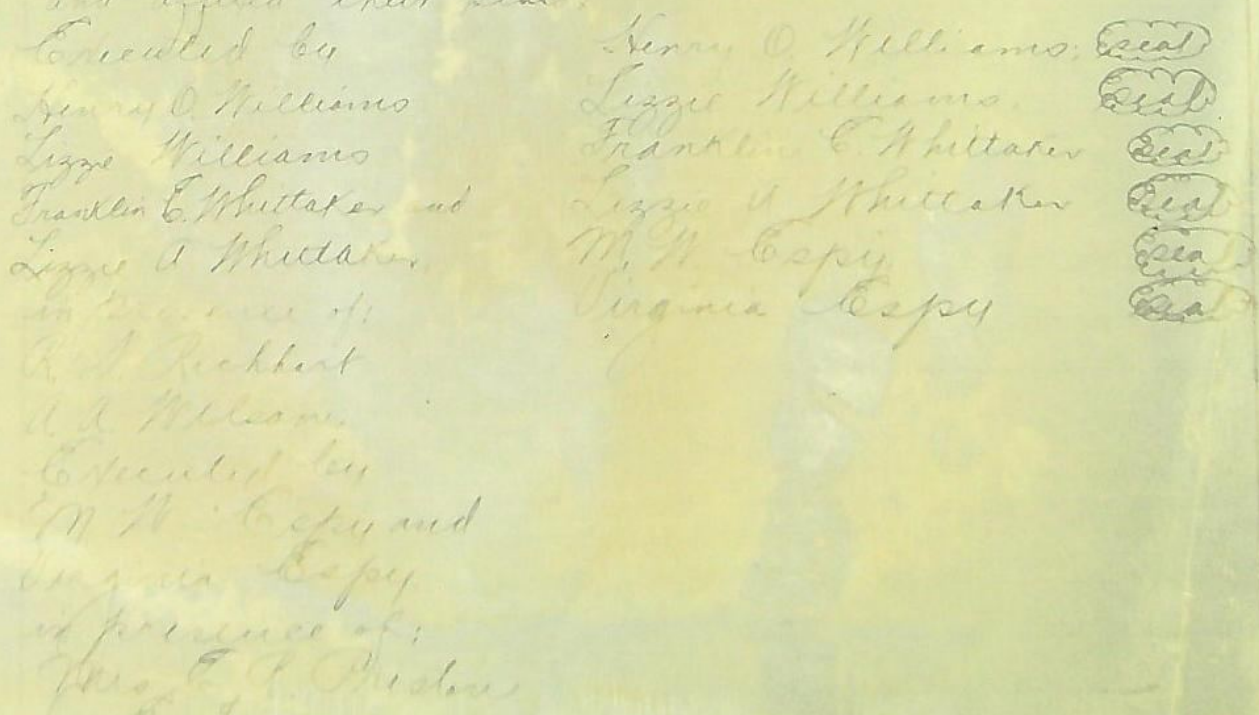 and affixed their seals.
Executed by
Henry O. Williams
Lizzie Williams
Franklin E. Whittaker and
Lizzie A Whittaker
in presence of:
A. A. Wilson
Executed by
M W Espy and
Virginia Espy
in presence of:
Henry O. Williams. seal
Lizzie Williams. seal
Franklin E. Whittaker seal
Lizzie A Whittaker seal
M. W. Espy seal
Virginia Espy seal